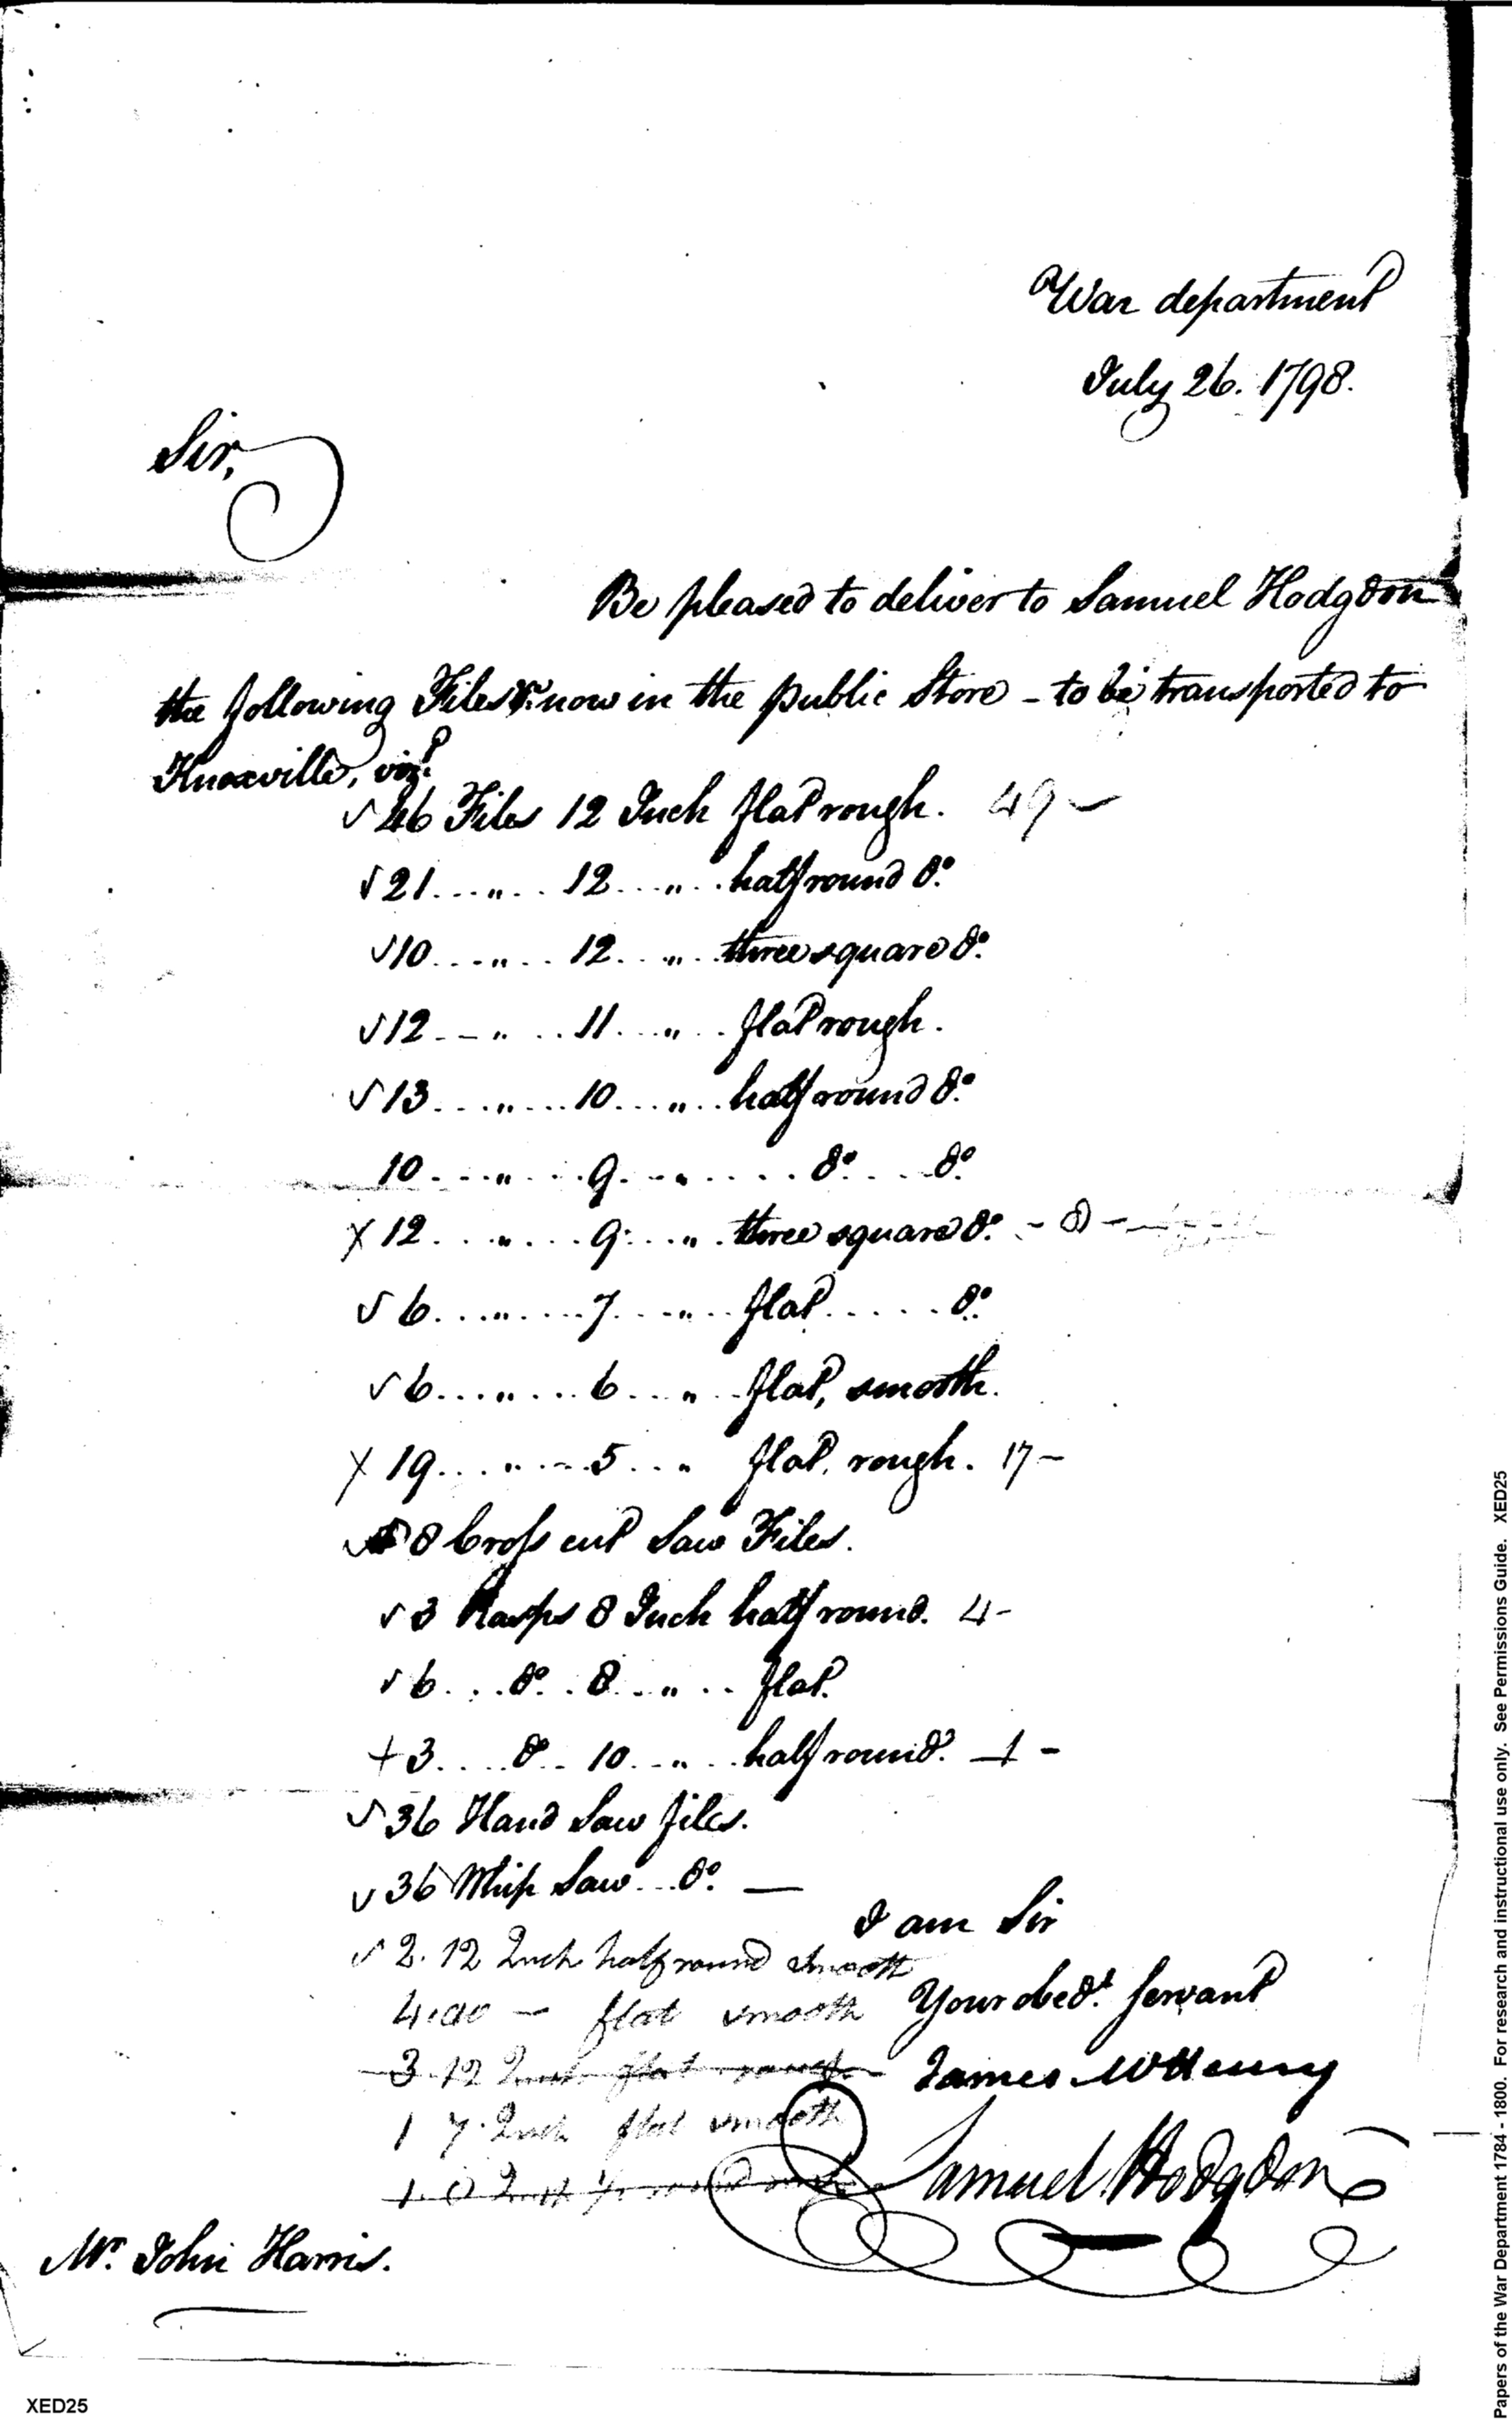 War department
July 26. 1798.
Sir,
Be pleased to deliver to Samuel Hodgdon
the following Files &c. now in the public Store - to be transported to
Knoxville, vizt.
√ 46 Files 12 Inch flat rough. 49 -
√ 21 . . . „ . . 12 . . . „ . . half round do.
√ 10 . . . „ . . 12 . . . „ . . three square do.
√ 12 - - „ . . . 11 . . . „ . . flat rough.
√ 13 . . . „ . . . 10 . . . „ . . half round do.
10 . . . „ . . . 9 . . . „ . . . . do. . . . do.
X 12 . . . „ . . . 9 . . . „ . three square do. - 8 -
√ 6 . . . „ . . . 7 . . . „ . . flat . . . . . do.
√ 6 . . . „ . . . 6 . . . „ . . flat, smooth.
X 19 . . . „ . . . 5 . . . „ flat, rough. 17 -
√ 8 Cross cut Saw Files.
√ 3 Rasps 8 Inch half round. 4 -
√ 6 . . . do. . 8 . . „ . . flat.
+ 3 . . . do . . 10 . . „ . . half round. 1 -
√ 36 Hand Saw files.
√ 36 Whip Saw . . . do. —
I am Sir
√ 2. 12 Inch half round smooth
Your obedt. servant
4. do - flat smooth
James McHenry
3. 12 Inch flat rough
1 7. Inch flat smooth
Samuel Hodgdon
Mr. John Harris.
XED25
Papers of the War Department 1784 - 1800. For research and instructional use only. See Permissions Guide. XED25